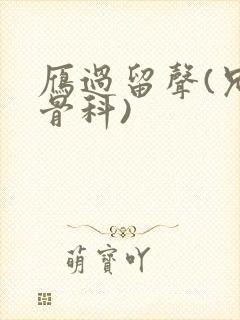 雁過留聲(兄
骨科)
萌寶吖